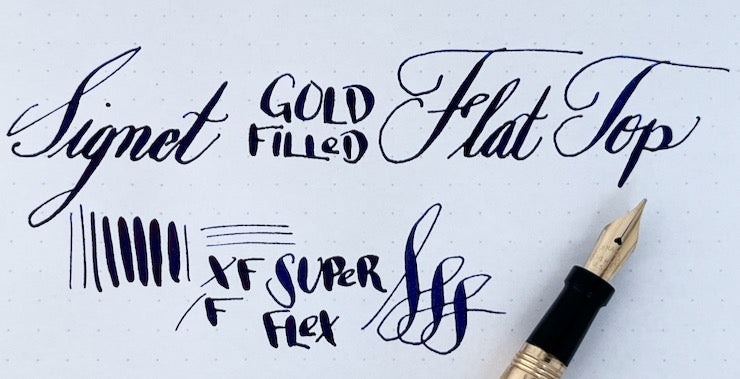 Signet GOLD FILLeD Flat Top
XF/F SUPeR FLeX